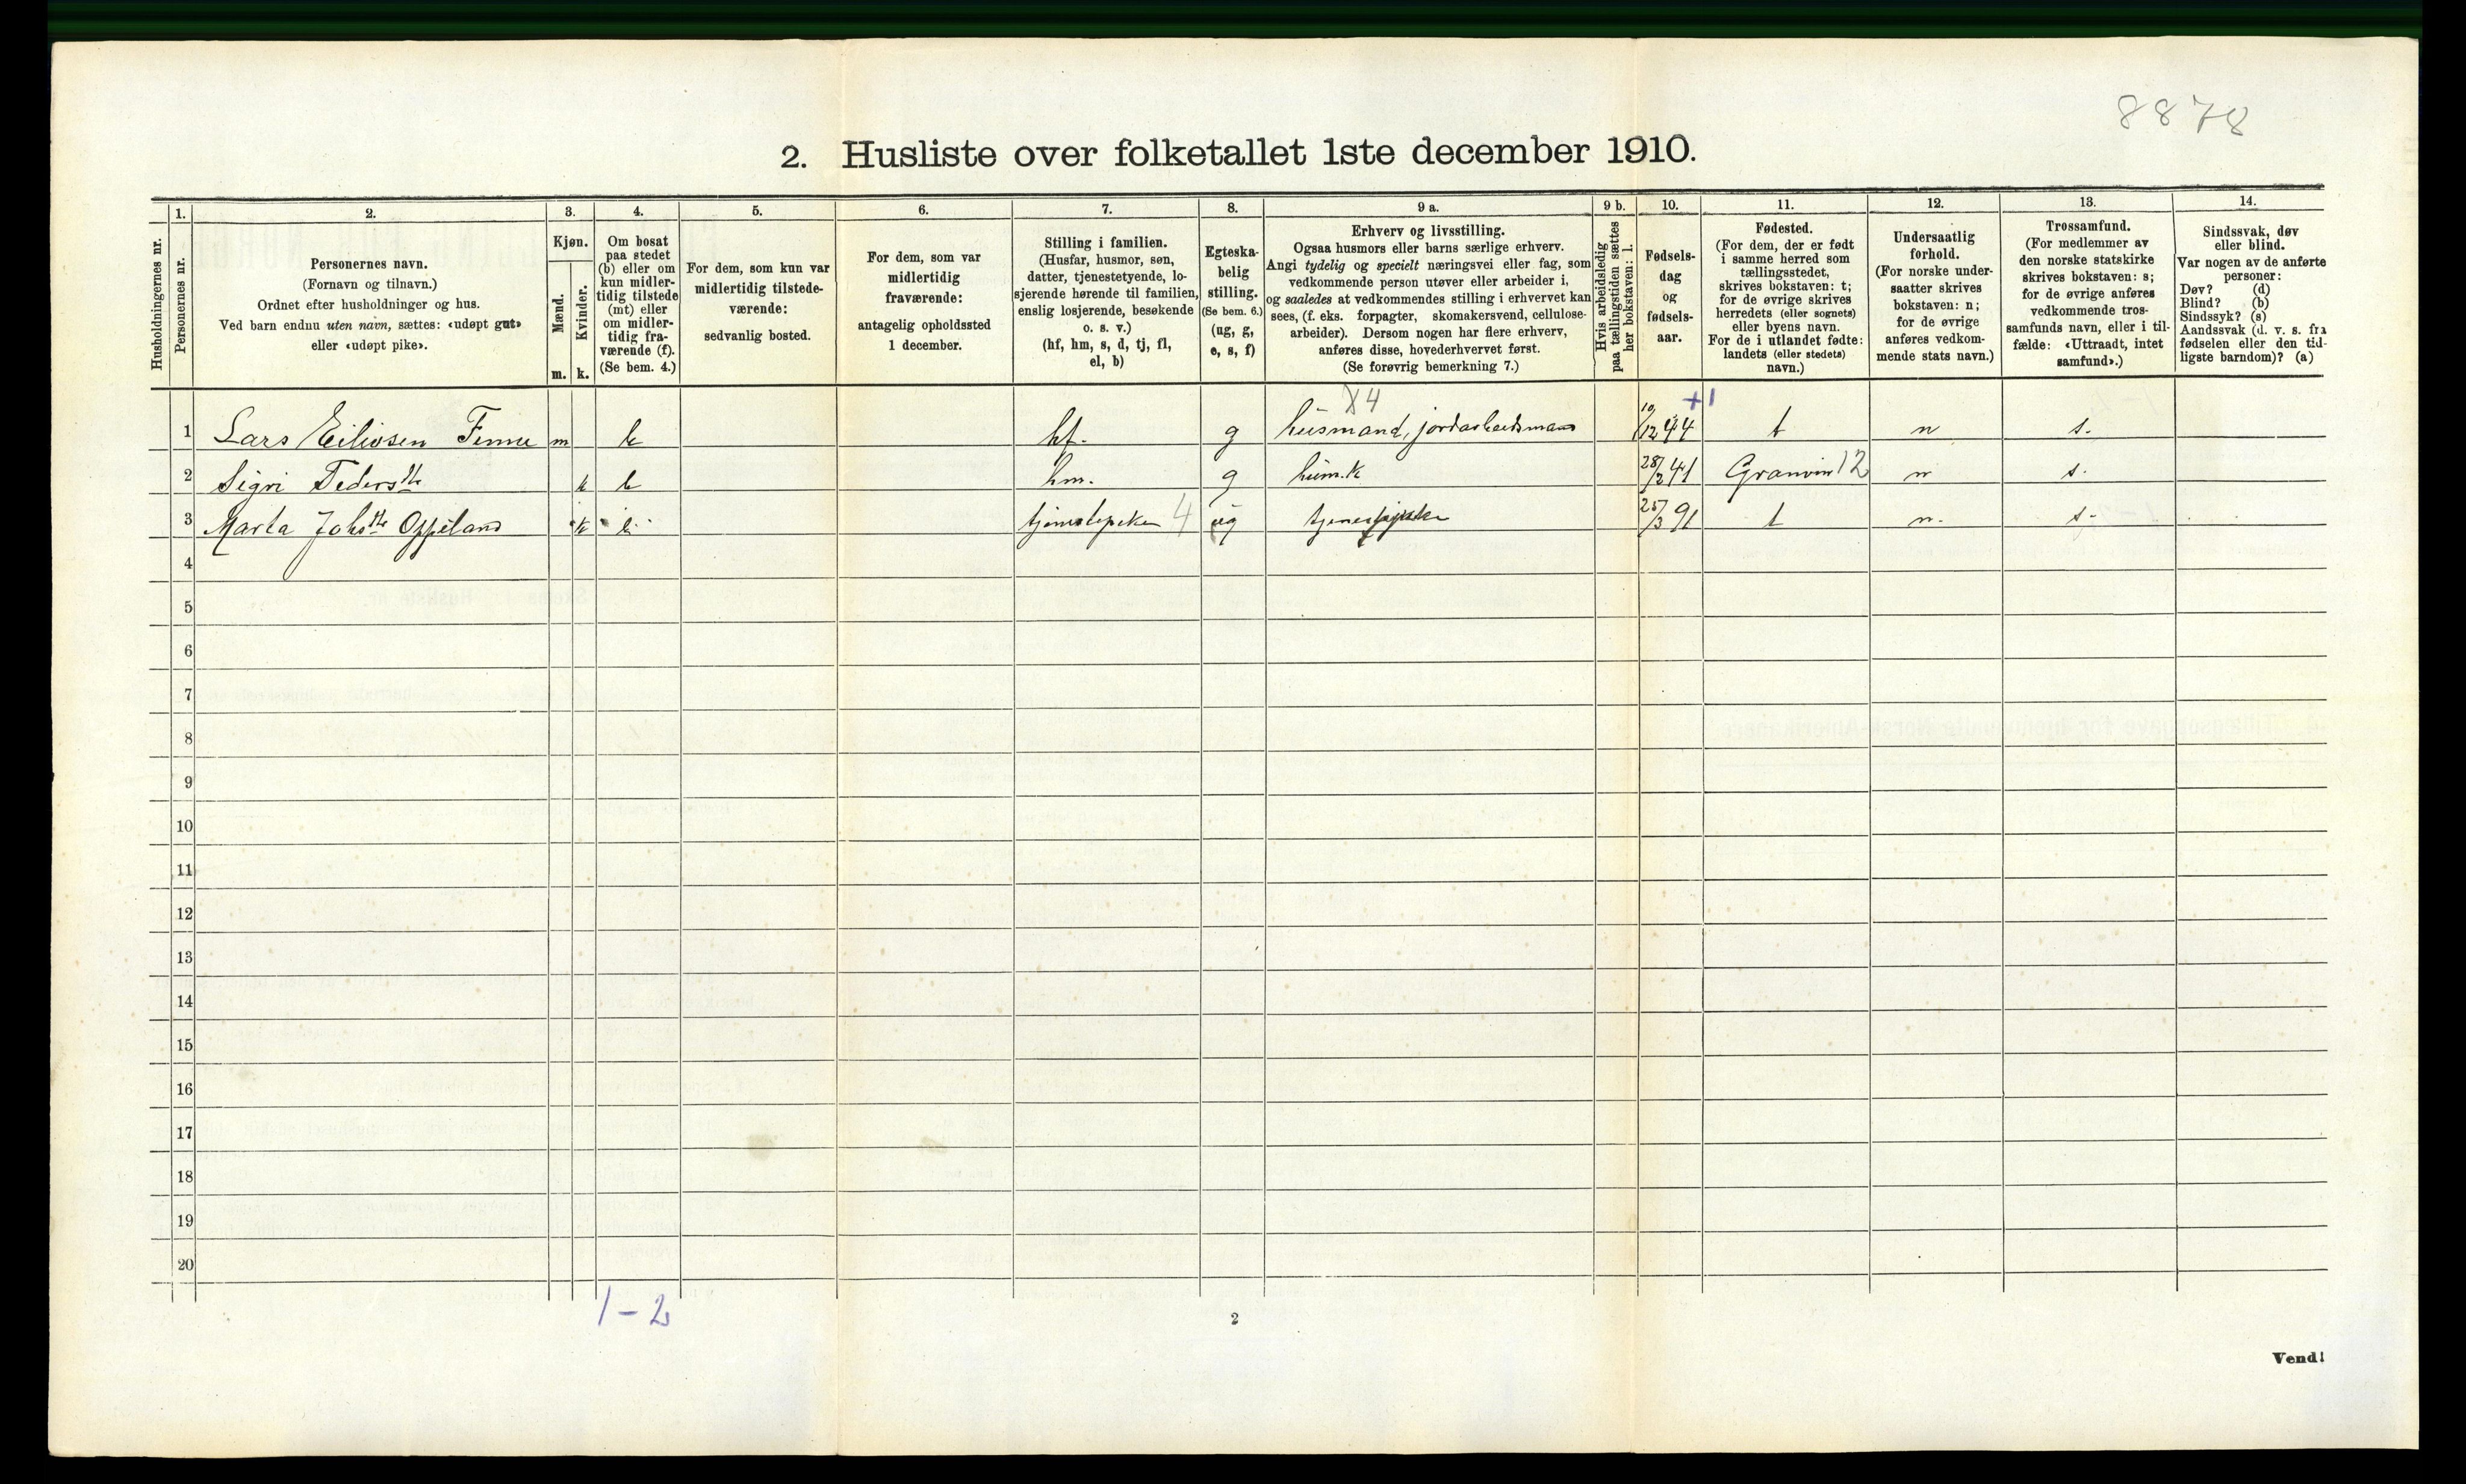 8878
2. Husliste over folketallet 1ste december 1910.
Husholdningernes nr.
1.
Personernes nr.
2.
Personernes navn.
(Fornavn og tilnavn.)
Ordnet efter husholdninger og hus.
Ved barn endnu uten navn, sættes: «udøpt gut»
eller «udøpt pike».
3.
Kjøn.
Mænd.
Kvinder.
m. k.
4.
Om bosat
paa stedet
(b) eller om
kun midler-
tidig tilstede
(mt) eller
om midler-
tidig fra-
værende (f).
(Se bem. 4.)
5.
For dem, som kun var
midlertidig tilstede-
værende:
sedvanlig bosted.
6.
For dem, som var
midlertidig
fraværende:
antagelig opholdssted
1 december.
7.
Stilling i familien.
(Husfar, husmor, søn,
datter, tjenestetyende, lo-
sjerende hørende til familien,
enslig losjerende, besøkende
o. s. v.)
(hf, hm, s, d, tj, fl,
el, b)
8.
Egteska-
belig
stilling.
(Se bem. 6.)
(ug, g,
e, s, f)
9 a.
Erhverv og livsstilling.
Ogsaa husmors eller barns særlige erhverv.
Angi tydelig og specielt næringsvei eller fag, som
vedkommende person utøver eller arbeider i,
og saaledes at vedkommendes stilling i erhvervet kan
sees, (f. eks. forpagter, skomakersvend, cellulose-
arbeider). Dersom nogen har flere erhverv,
anføres disse, hovederhvervet først.
(Se forøvrig bemerkning 7.)
9 b.
Hvis arbeidsledig
paa tællingstiden sættes
her bokstaven: l.
10.
Fødsels-
dag
og
fødsels-
aar.
11.
Fødested.
(For dem, der er født
i samme herred som
tællingsstedet,
skrives bokstaven: t;
for de øvrige skrives
herredets (eller sognets)
eller byens navn.
For de i utlandet fødte:
landets (eller stedets)
navn.)
12.
Undersaatlig
forhold.
(For norske under-
saatter skrives
bokstaven: n;
for de øvrige
anføres vedkom-
mende stats navn.)
13.
Trossamfund.
(For medlemmer av
den norske statskirke
skrives bokstaven: s;
for de øvrige anføres
vedkommende tros-
samfunds navn, eller i til-
fælde: «Uttraadt, intet
samfund».)
14.
Sindssvak, døv
eller blind.
Var nogen av de anførte
personer:
Døv? (d)
Blind? (b)
Sindssyk? (s)
Aandssvak (d. v. s. fra
fødselen eller den tid-
ligste barndom)? (a)
X4 +1
1 Lars Eilivsen m b hf. g husmand, jordarbeidsmand 10/12 44 t n s.
2 Sigri k b hm. g 28/2 41 Granvin 12 n s.
3 Marta Johs dtr k b tjenestepike 4 ug 25/3 91 t n. s.
4
5
6
7
8
9
10
11
12
13
14
15
16
17
18
19
20
1-2
2
Vend!